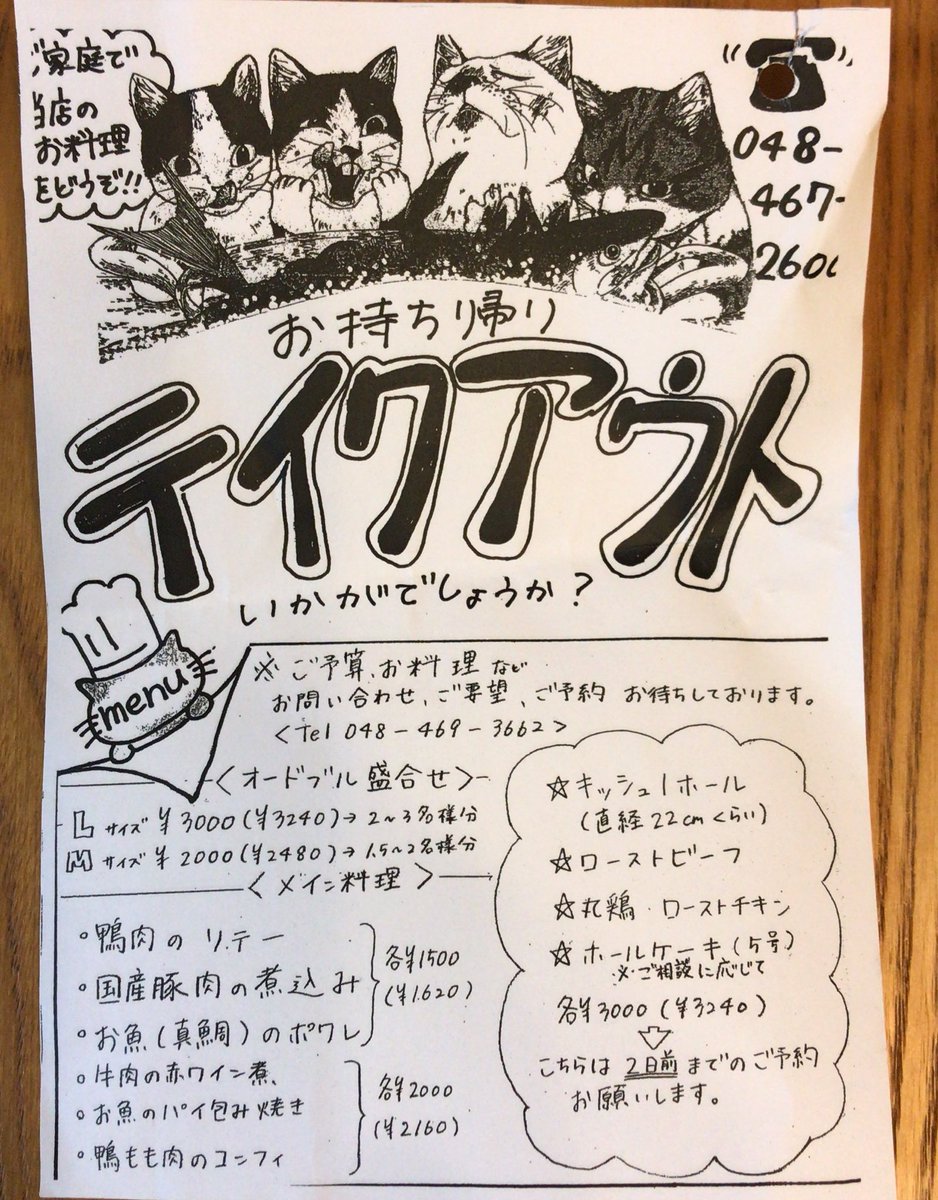 ご家庭で
当店の
お料理
をどうぞ!!
048-
467-
260
お持ち帰り
テイクアウト
いかがでしょうか?
menu
※ ご予算、お料理など
お問い合わせ、ご要望、ご予約 お待ちしております。
<Tel 048-469-3662>
<オードブル盛合せ>
Lサイズ ¥3000(¥3240)→2~3名様分
Mサイズ ¥2000(¥2480)→1.5~2名様分
<メイン料理>
。鴨肉のソテー
。国産豚肉の煮込み
。お魚(真鯛)のポワレ
各¥1500
(¥1.620)
。牛肉の赤ワイン煮
。お魚のパイ包み焼き
。鴨もも肉のコンフィ
各¥2000
(¥2160)
☆キッシュ1ホール
(直経22cmくらい)
☆ローストビーフ
☆丸鶏・ローストチキン
☆ホールケーキ(5号)
※ご相談に応じて
各¥3000(¥3240)
こちらは2日前までのご予約
お願いします。